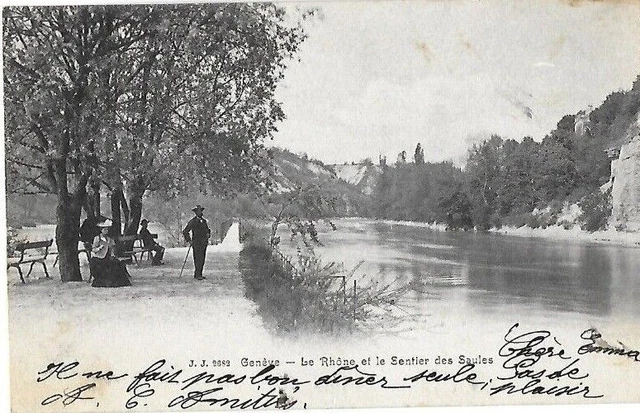 J. J. 2682 Genève — Le Rhône et le Sentier des Saules
Chère Emma
Il ne fait pas bon dîner seule, Pas de plaisir
A. E. Amitiés.